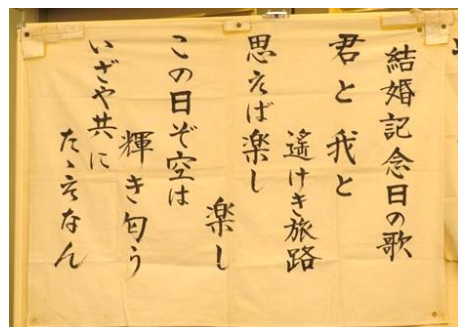 結婚記念日の歌
君と我と
遙けき旅路
思えば楽し
楽し
この日ぞ空は
輝き匂う
いざや共に
たゝえなん